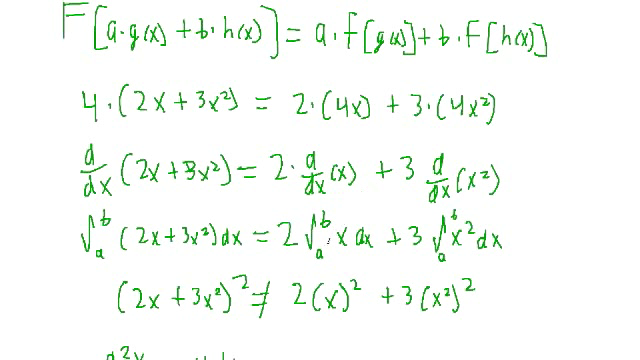 F[a·g(x) + b·h(x)] = a·F[g(x)] + b·F[h(x)]
4·(2x + 3x²) = 2·(4x) + 3·(4x²)
d/dx (2x + 3x²) = 2·d/dx (x) + 3 d/dx (x²)
∫ₐᵇ (2x + 3x²) dx = 2 ∫ₐᵇ x dx + 3 ∫ₐᵇ x² dx
(2x + 3x²)² ≠ 2(x)² + 3(x²)²